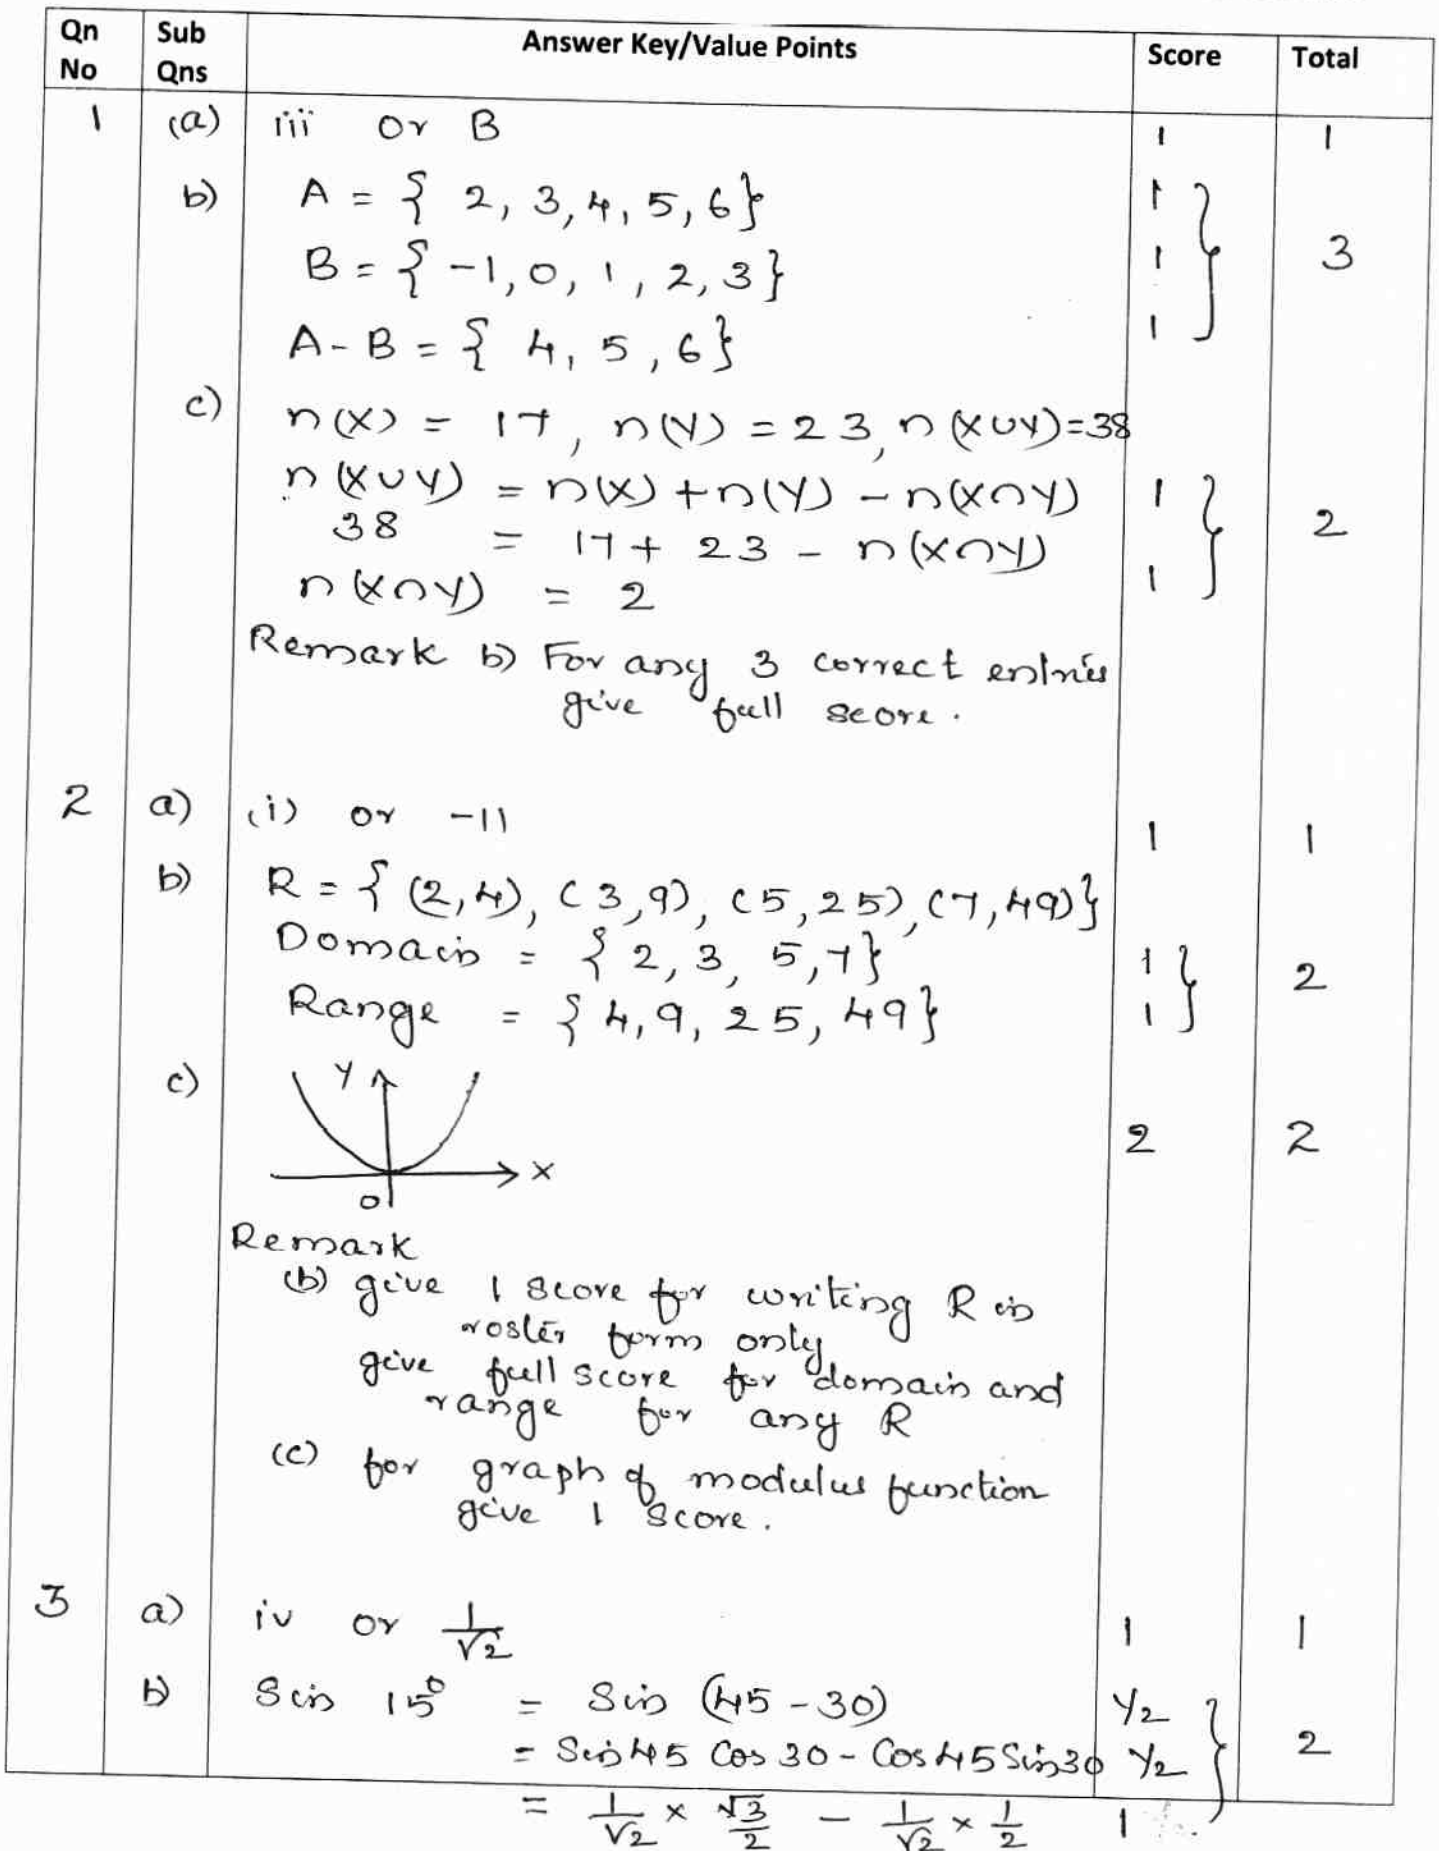 Qn No | Sub Qns | Answer Key/Value Points | Score | Total
1 | (a) | iii or B | 1 | 1
b) | A = { 2, 3, 4, 5, 6} | 1
B = { -1, 0, 1, 2, 3} | 1 | 3
A - B = { 4, 5, 6} | 1
c) | n(X) = 17, n(Y) = 23, n(X∪Y)=38
n(X∪Y) = n(X) + n(Y) - n(X∩Y) | 1
38 = 17 + 23 - n(X∩Y) | 2
n(X∩Y) = 2 | 1
Remark b) For any 3 correct entries
give full score.
2 | a) | (i) or -11 | 1 | 1
b) | R = { (2,4), (3,9), (5,25), (7,49)}
Domain = { 2, 3, 5, 7} | 1 | 2
Range = { 4, 9, 25, 49} | 1
c) | Y
X | 2 | 2
O
Remark
(b) give 1 score for writing R in
roster form only
give full score for domain and
range for any R
(c) for graph of modulus function
give 1 score.
3 | a) | iv or 1/√2 | 1 | 1
b) | Sin 15° = Sin (45 - 30) | 1/2
= Sin45 Cos 30 - Cos45 Sin30 | 1/2 | 2
= 1/√2 × √3/2 - 1/√2 × 1/2 | 1